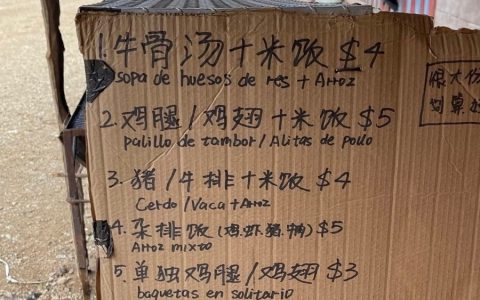 1. 牛骨汤+米饭 $4
sopa de huesos de res + Arroz
2. 鸡腿/鸡翅+米饭 $5
palillo de tambor/Alitas de pollo
3. 猪/牛排+米饭 $4
Cerdo/Vaca + Arroz
4. 杂排饭(鸡.虾.猪.鸭) $5
Arroz mixto
5. 单独鸡腿/鸡翅 $3
baquetas en solitario
很大份
划算